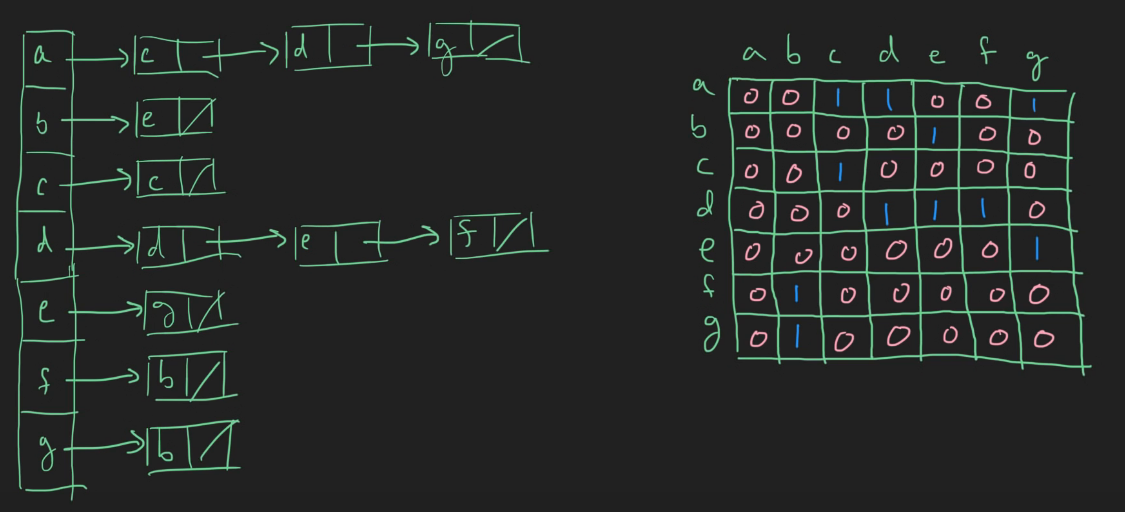 a c d g
b e
c c
d d e f
e g
f b
g b
a b c d e f g
a 0 0 1 1 0 0 1
b 0 0 0 0 1 0 0
c 0 0 1 0 0 0 0
d 0 0 0 1 1 1 0
e 0 0 0 0 0 0 1
f 0 1 0 0 0 0 0
g 0 1 0 0 0 0 0